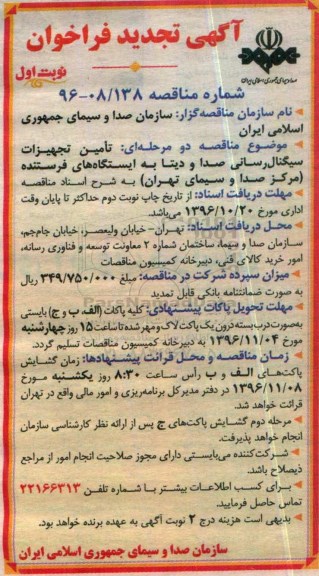 آگهی تجدید فراخوان
صدا و سیمای جمهوری اسلامی ایران
نوبت اول
شماره مناقصه ۹۶-۰۸/۱۳۸
نام سازمان مناقصه‌گزار: سازمان صدا و سیمای جمهوری
اسلامی ایران
موضوع مناقصه دو مرحله‌ای: تأمین تجهیزات
سیگنال‌رسانی صدا و دیتا به ایستگاه‌های فرستنده
(مرکز صدا و سیمای تهران) به شرح اسناد مناقصه
مهلت دریافت اسناد: از تاریخ چاپ نوبت دوم حداکثر تا پایان وقت
اداری مورخ ۱۳۹۶/۱۰/۲۰ می‌باشد.
محل دریافت اسناد: تهران- خیابان ولیعصر، خیابان جام‌جم،
سازمان صدا و سیما، ساختمان شماره ۲ معاونت توسعه و فناوری رسانه،
امور خرید کالای فنی، دبیرخانه کمیسیون مناقصات
میزان سپرده شرکت در مناقصه: مبلغ ۳۴۹/۷۵۰/۰۰۰ ریال
به صورت ضمانتنامه بانکی قابل تمدید
مهلت تحویل پاکات پیشنهادی: کلیه پاکات (الف، ب و ج) بایستی
به‌صورت درب بسته درون یک پاکت لاک و مهر شده تا ساعت ۱۵ روز چهارشنبه
مورخ ۱۳۹۶/۱۱/۰۴ به دبیرخانه کمیسیون مناقصات تسلیم گردد.
زمان مناقصه و محل قرائت پیشنهادها: زمان گشایش
پاکت‌های الف و ب رأس ساعت ۸:۳۰ روز یکشنبه مورخ
۱۳۹۶/۱۱/۰۸ در دفتر مدیرکل برنامه‌ریزی و امور مالی واقع در تهران
قرائت خواهد شد.
مرحله دوم گشایش پاکت‌های ج پس از ارائه نظر کارشناسی سازمان
انجام خواهد پذیرفت.
شرکت‌کننده می‌بایستی دارای مجوز صلاحیت انجام امور از مراجع
ذیصلاح باشد.
برای کسب اطلاعات بیشتر با شماره تلفن ۲۲۱۶۶۳۱۳
تماس حاصل فرمایید.
بدیهی است هزینه درج ۲ نوبت آگهی به عهده برنده خواهد بود.
سازمان صدا و سیمای جمهوری اسلامی ایران